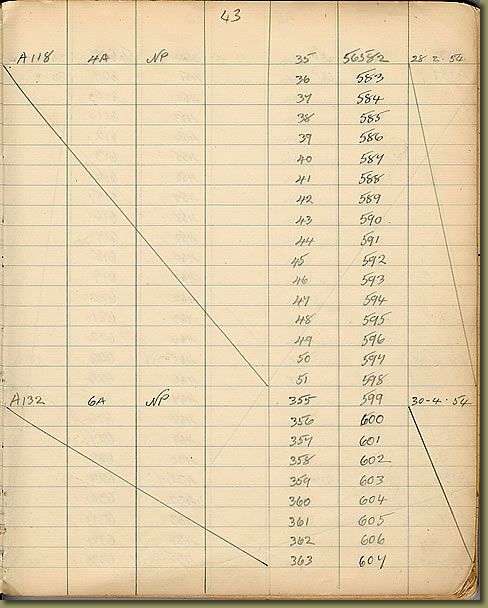 43
A118 4A NP 35 56582 28-2-54
36 583
37 584
38 585
39 586
40 587
41 588
42 589
43 590
44 591
45 592
46 593
47 594
48 595
49 596
50 597
51 598
A132 6A NP 355 599 30-4-54
356 600
357 601
358 602
359 603
360 604
361 605
362 606
363 607